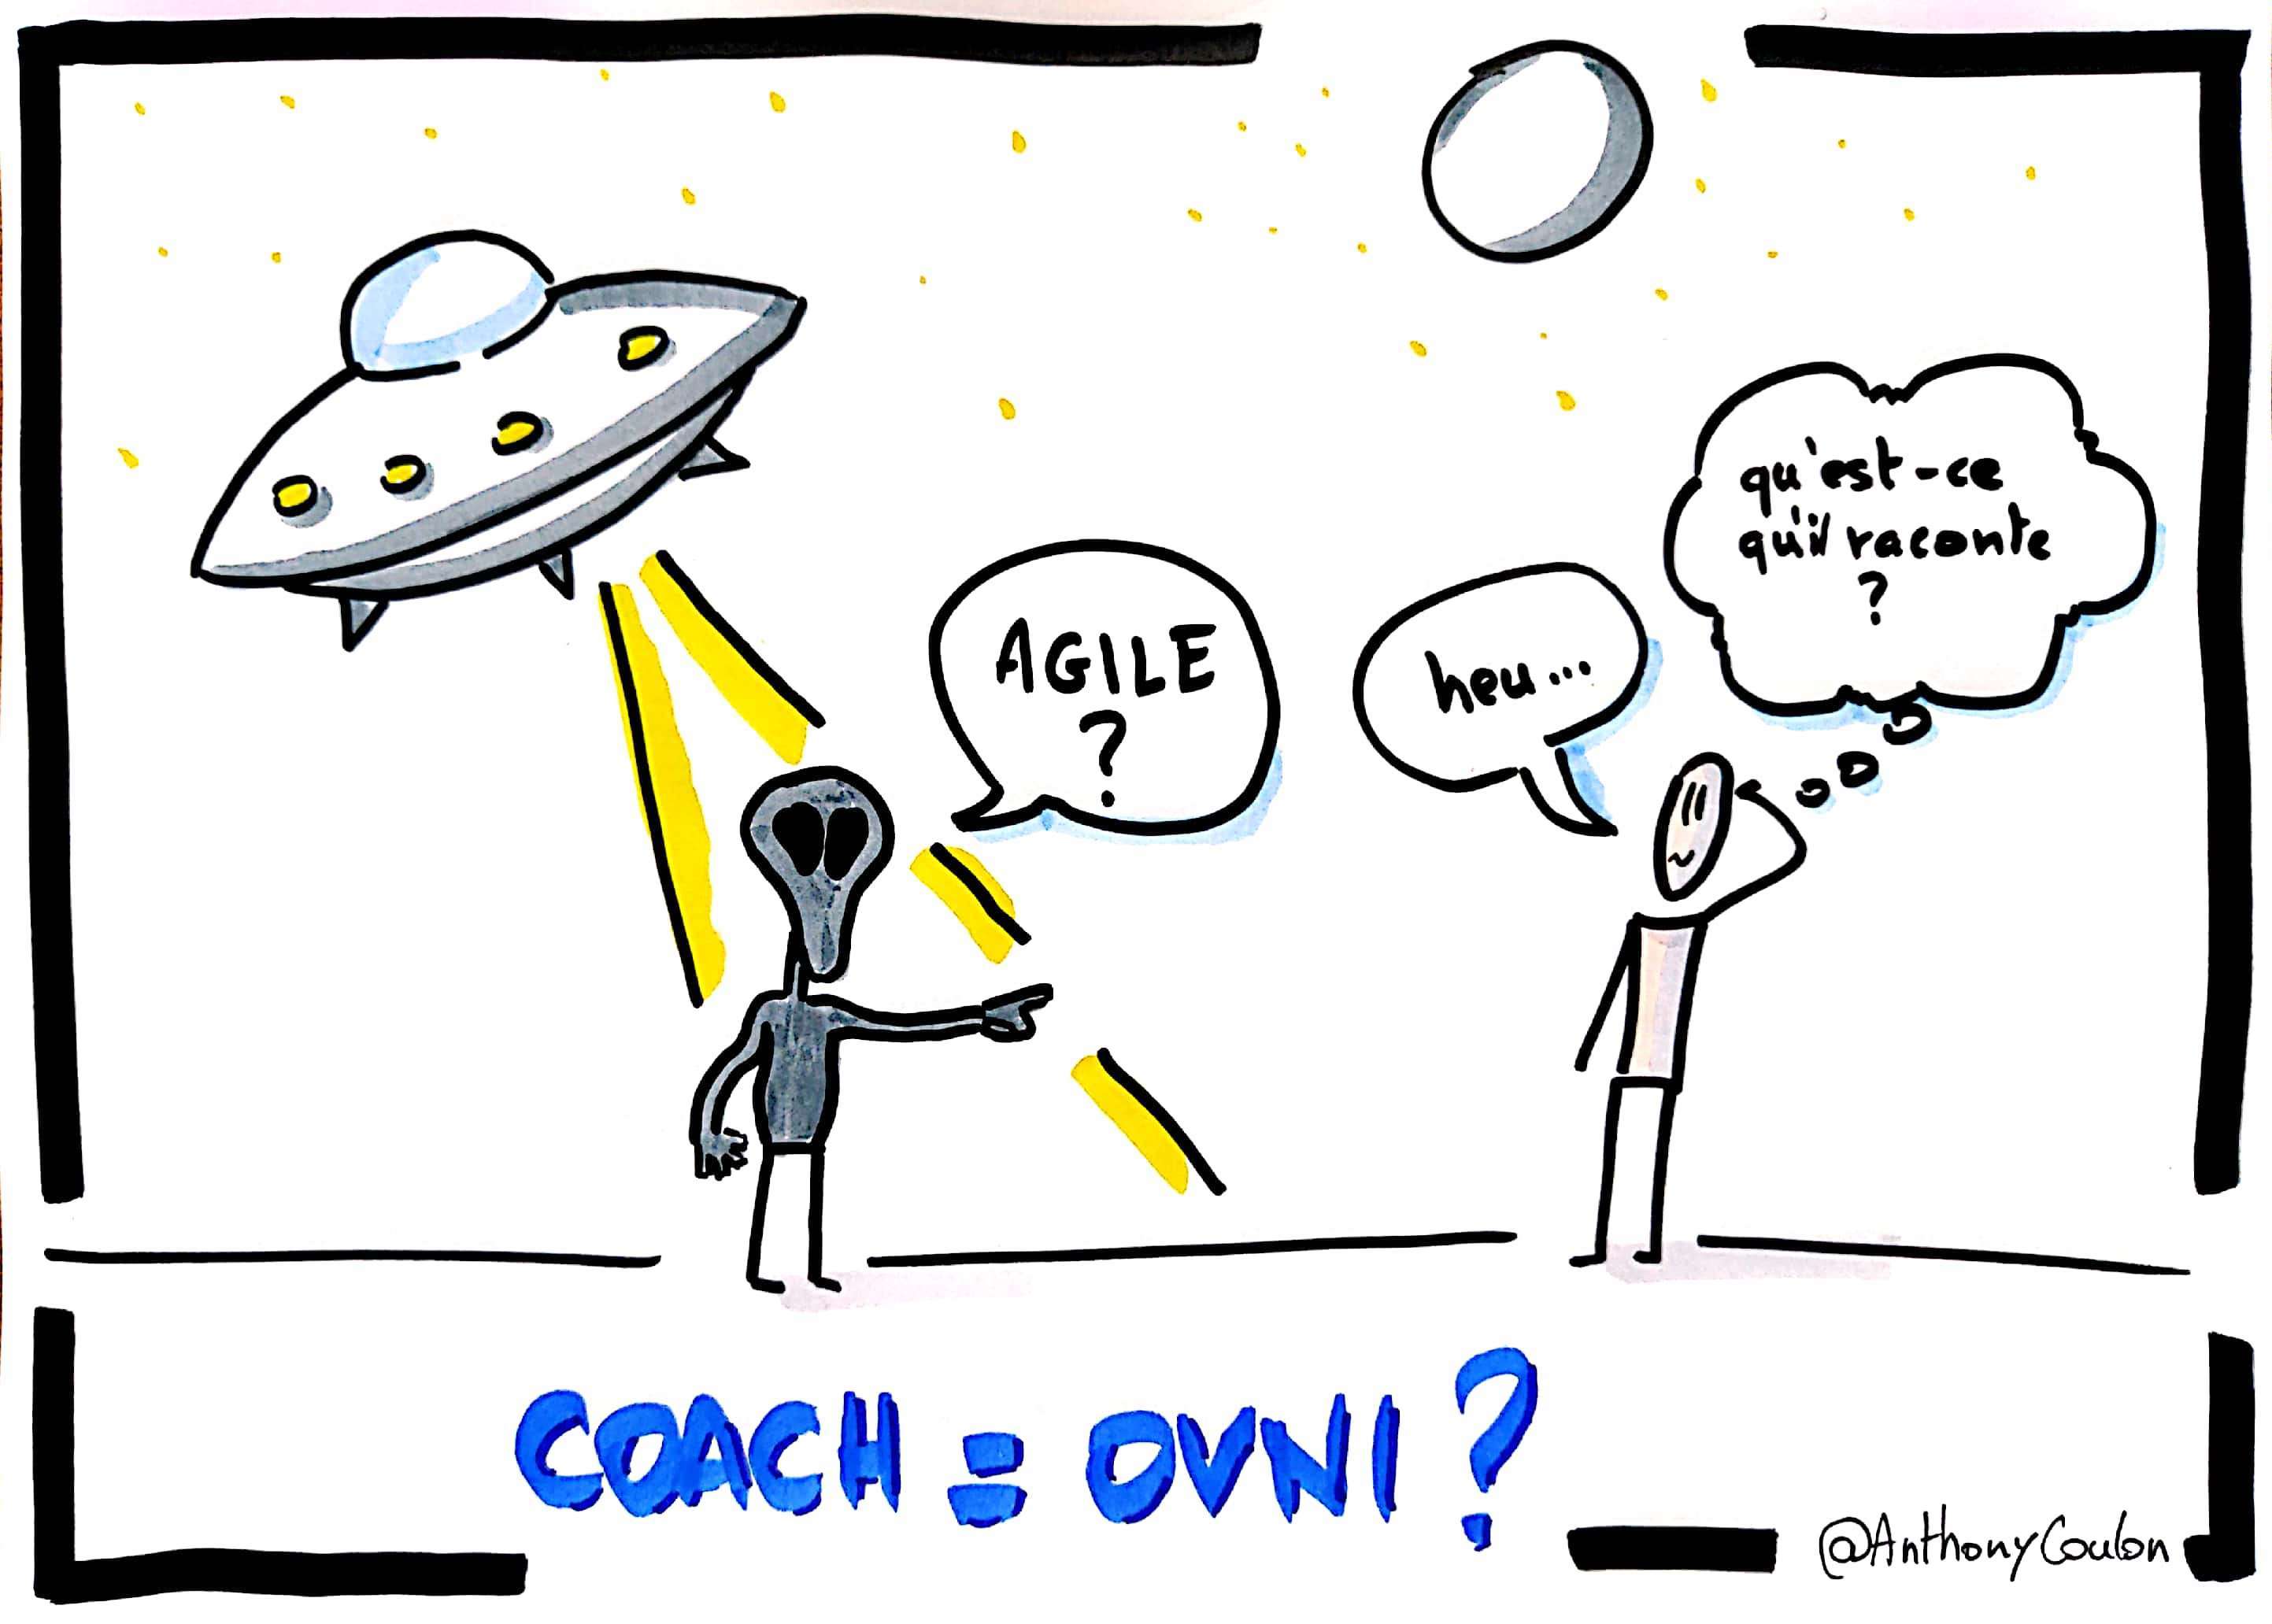 AGILE
?
heu...
qu'est-ce
qu'il raconte
?
COACH = OVNI ?
@AnthonyCoulon